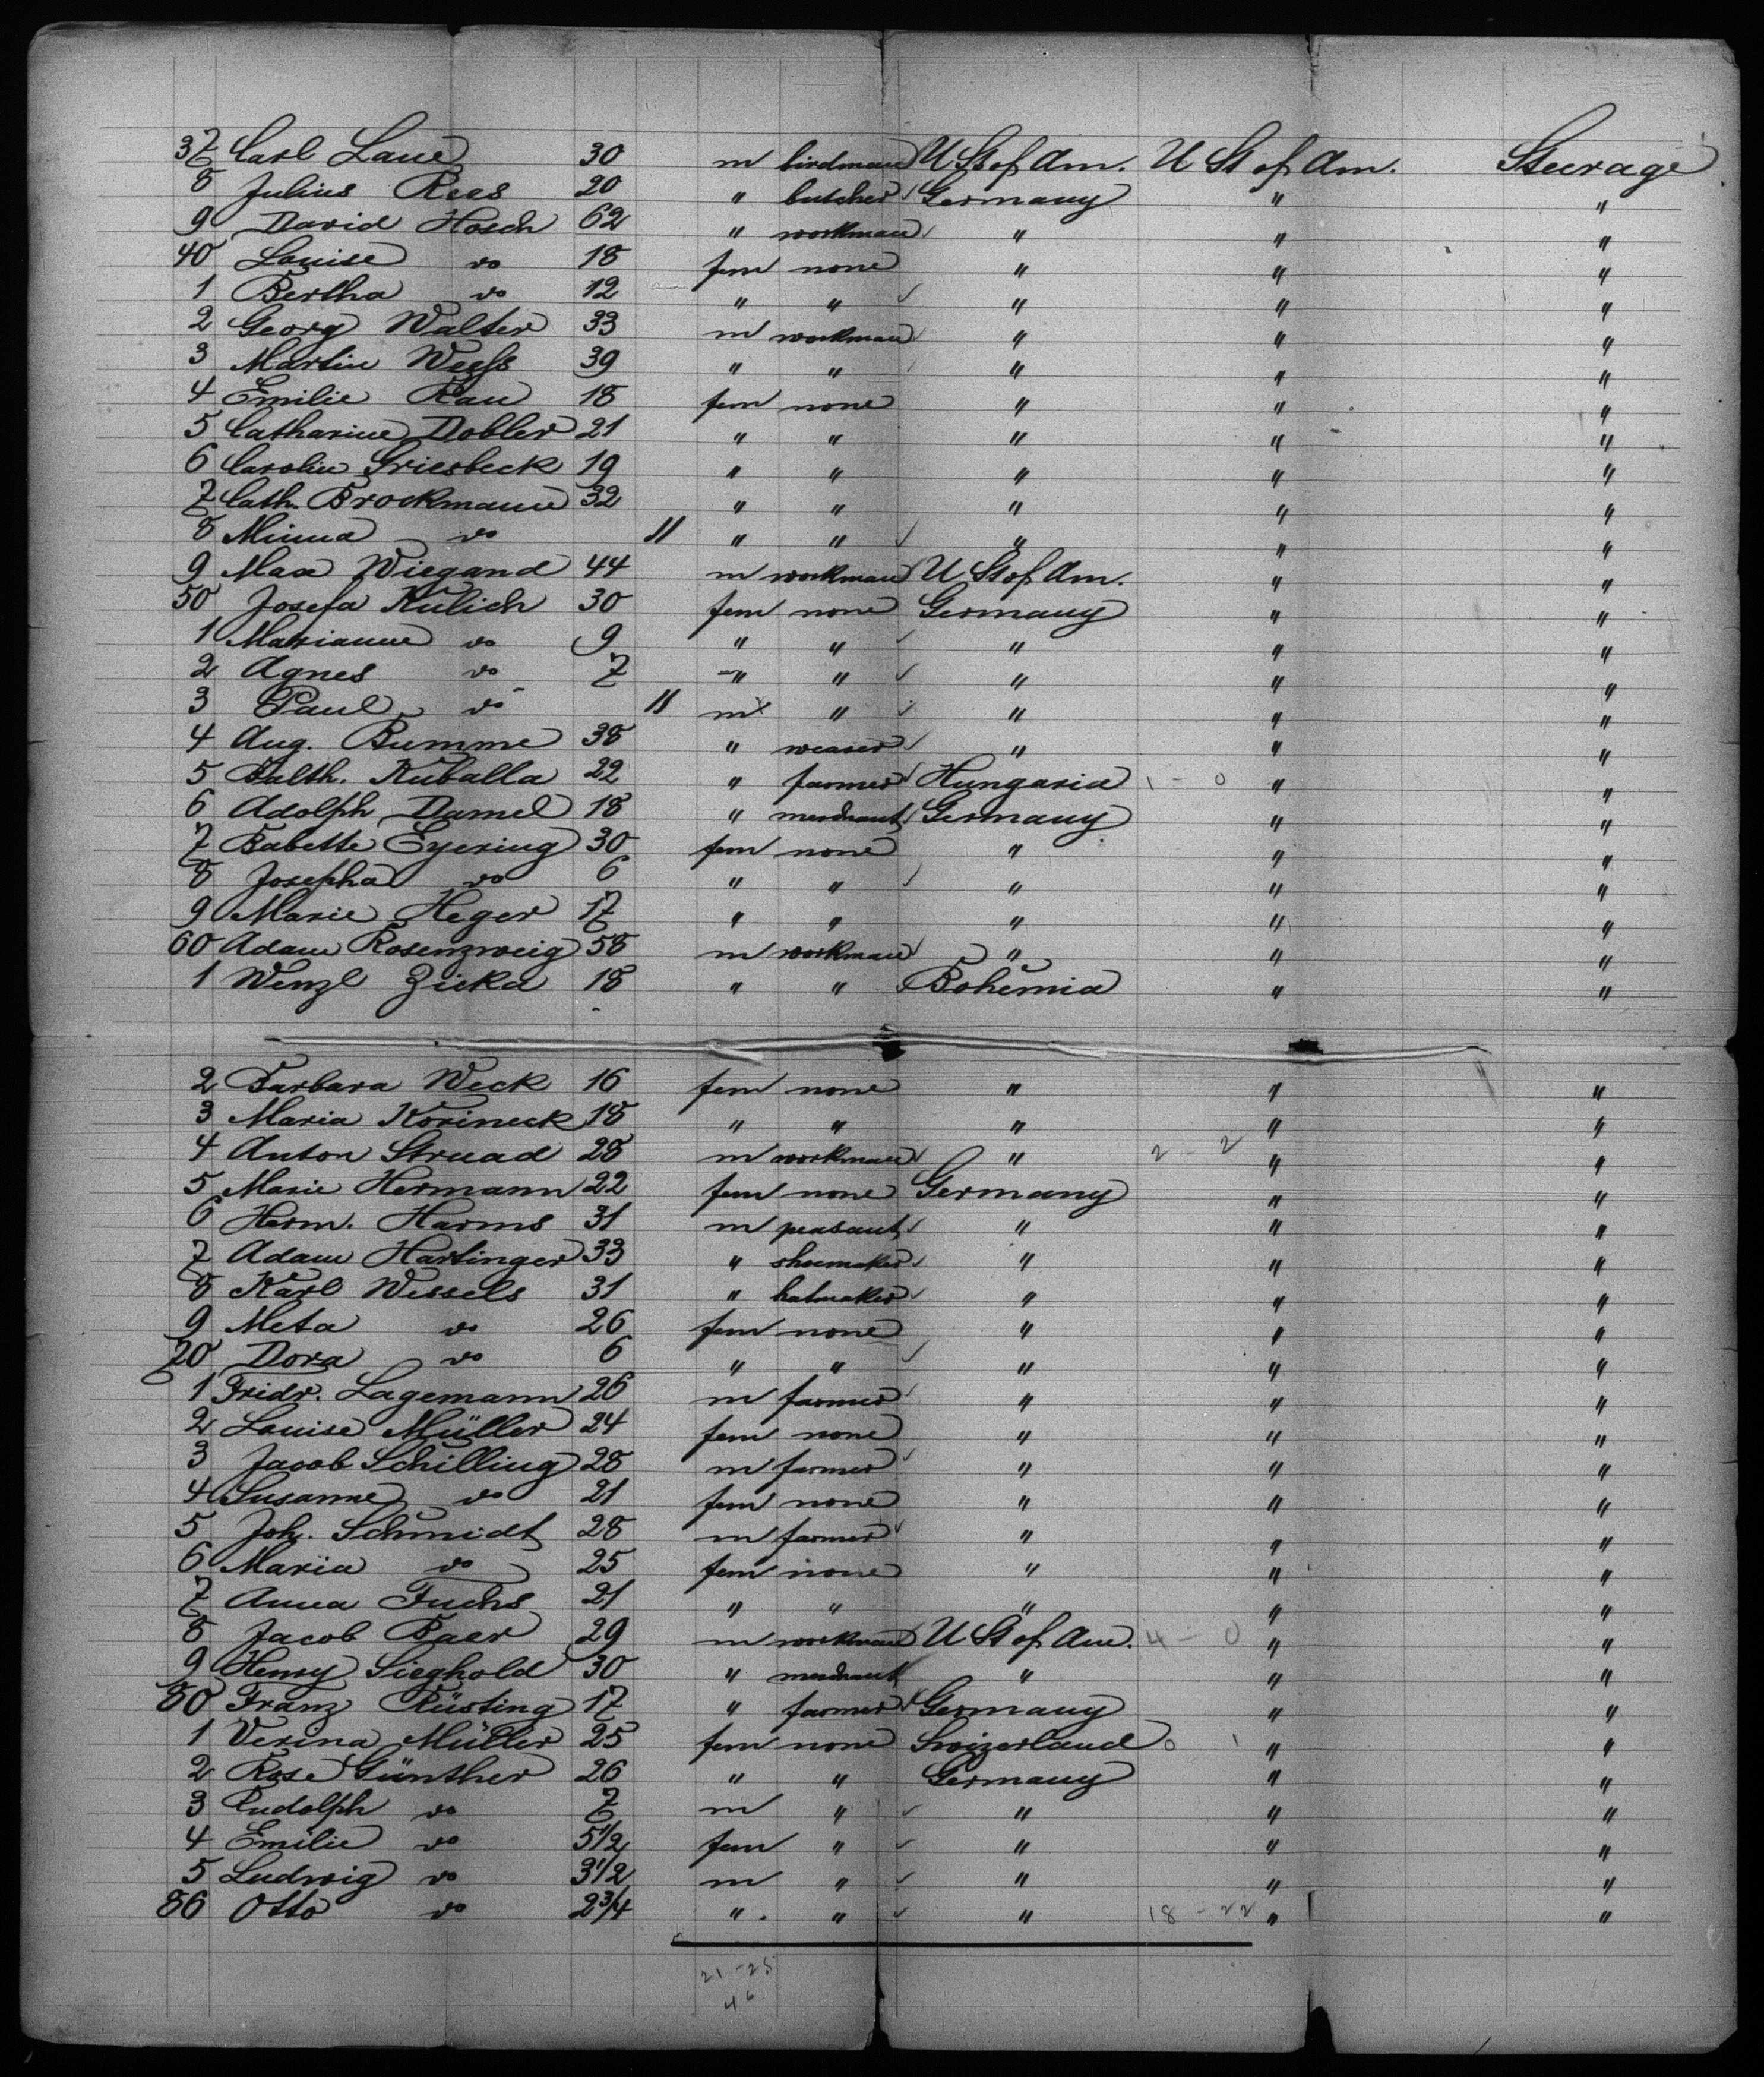 37 Carl Laue 30 m birdman U St of Am. U St of Am. Steerage
8 Julius Rees 20 " butcher Germany " "
9 David Hosch 62 " workman " " "
40 Louise do 18 fem none " " "
1 Bertha do 12 " " " " "
2 Georg Walter 33 m workman " " "
3 Martin Weefs 39 " " " " "
4 Emilie Rau 18 fem none " " "
5 Catharine Dobler 21 " " " " "
6 Carolin Griesbeck 19 " " " " "
7 Cath. Brockmann 32 " " " " "
8 Minna do 11 " " " " "
9 Max Wiegand 44 m workman U St of Am. " "
50 Josefa Kulich 30 fem none Germany " "
1 Marianne do 9 " " " " "
2 Agnes do 7 " " " " "
3 Paul do 11 m " " " "
4 Aug. Bumme 38 " weaver " " "
5 Balth. Kuballa 22 " farmer Hungaria 1 - 0 " "
6 Adolph Damel 18 " merchant Germany " "
7 Babette Eyering 30 fem none " " "
8 Josepha do 6 " " " " "
9 Marie Heger 17 " " " " "
60 Adam Rosenzweig 58 m workman " " "
1 Wenzl Zicka 18 " " Bohemia " "
2 Barbara Weck 16 fem none " " "
3 Maria Korineck 18 " " " " "
4 Anton Struad 28 m workman " 2 - 2 " "
5 Marie Hermann 22 fem none Germany " "
6 Herm. Harms 31 m peasant " " "
7 Adam Hartinger 33 " shoemaker " " "
8 Karl Wessels 31 " hatmaker " " "
9 Meta do 26 fem none " " "
70 Dora do 6 " " " " "
1 Fridr. Lagemann 26 m farmer " " "
2 Louise Müller 24 fem none " " "
3 Jacob Schilling 28 m farmer " " "
4 Susanne do 21 fem none " " "
5 Joh. Schmidt 28 m farmer " " "
6 Maria do 25 fem none " " "
7 Anna Fuchs 21 " " " " "
8 Jacob Baer 29 m workman U St of Am. 4 - 0 " "
9 Henry Sieghold 30 " merchant " " "
80 Franz Rüsting 17 " farmer Germany " "
1 Verina Müller 25 fem none Swizerland 0 1 " "
2 Rose Günther 26 " " Germany " "
3 Rudolph do 7 m " " " "
4 Emilie do 5 1/2 fem " " " "
5 Ludwig do 3 1/2 m " " " "
86 Otto do 2 3/4 " " " 18 - 22 " "
21 - 25
46